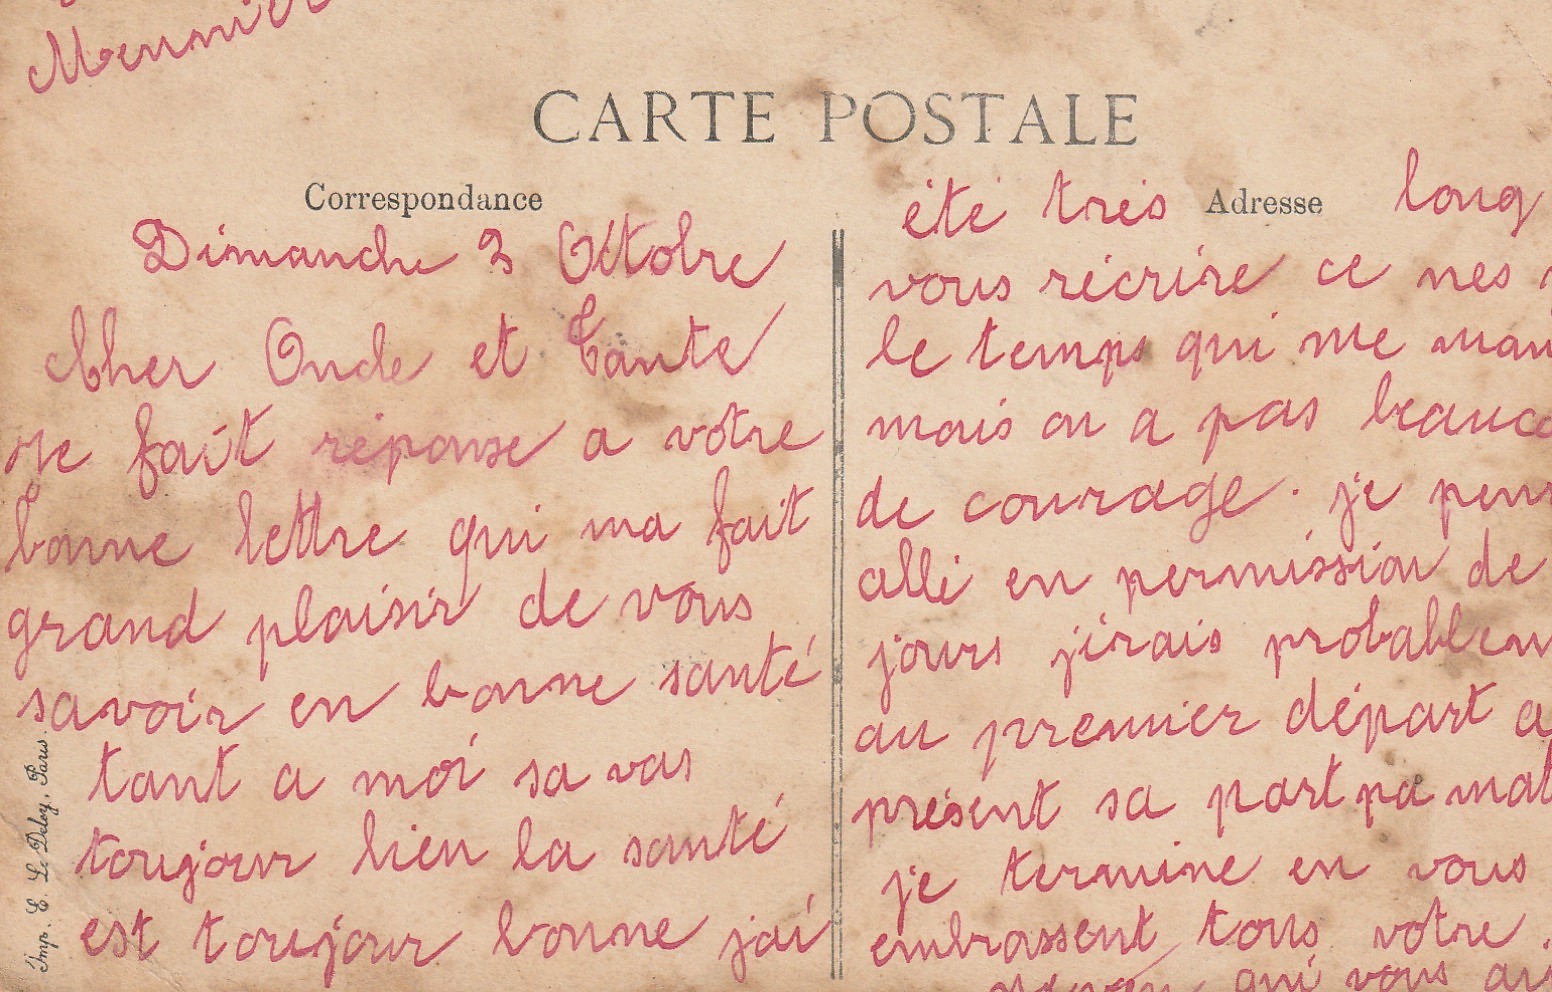 Meunier
CARTE POSTALE
Correspondance
Adresse
Dimanche 3 Octobre
Cher Oncle et Tante
Je fait réponse a votre
bonne lettre qui ma fait
grand plaisir de vous
savoir en bonne santé
tant a moi sa vas
toujour bien la santé
est toujour bonne jai
été très long
vous récrire ce nes
le temps qui me man
mais on a pas beauco
de courage. je pens
allé en permission de
jours jirais probablem
au premier départ a
présent sa part pa mal
je termine en vous
embrassent tous votre
neveu qui vous
Imp. E. Le Deley, Paris.